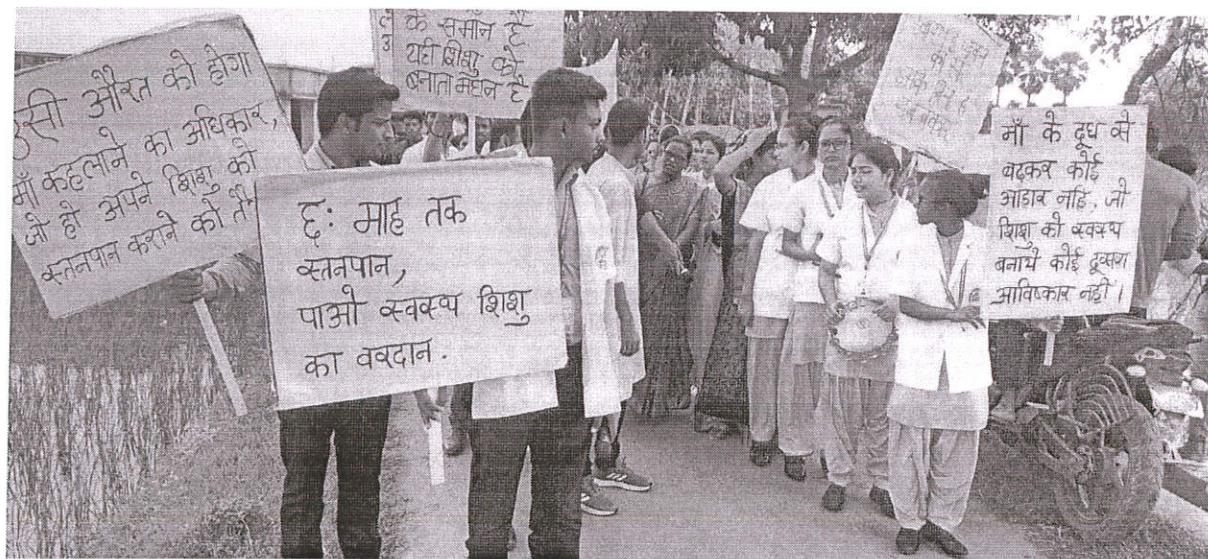 औरत को होगा
माँ कहलाने का अधिकार,
जो हो अपने शिशु को
स्तनपान कराने को तै
छ: माह तक
स्तनपान,
पाओ स्वस्थ शिशु
का वरदान.
के समान है
यही शिशु को
बनाता महान है
माँ के दूध से
बढ़कर कोई
आहार नहि, जो
शिशु को स्वस्थ
बनाये कोई दूसरा
आविष्कार नही।